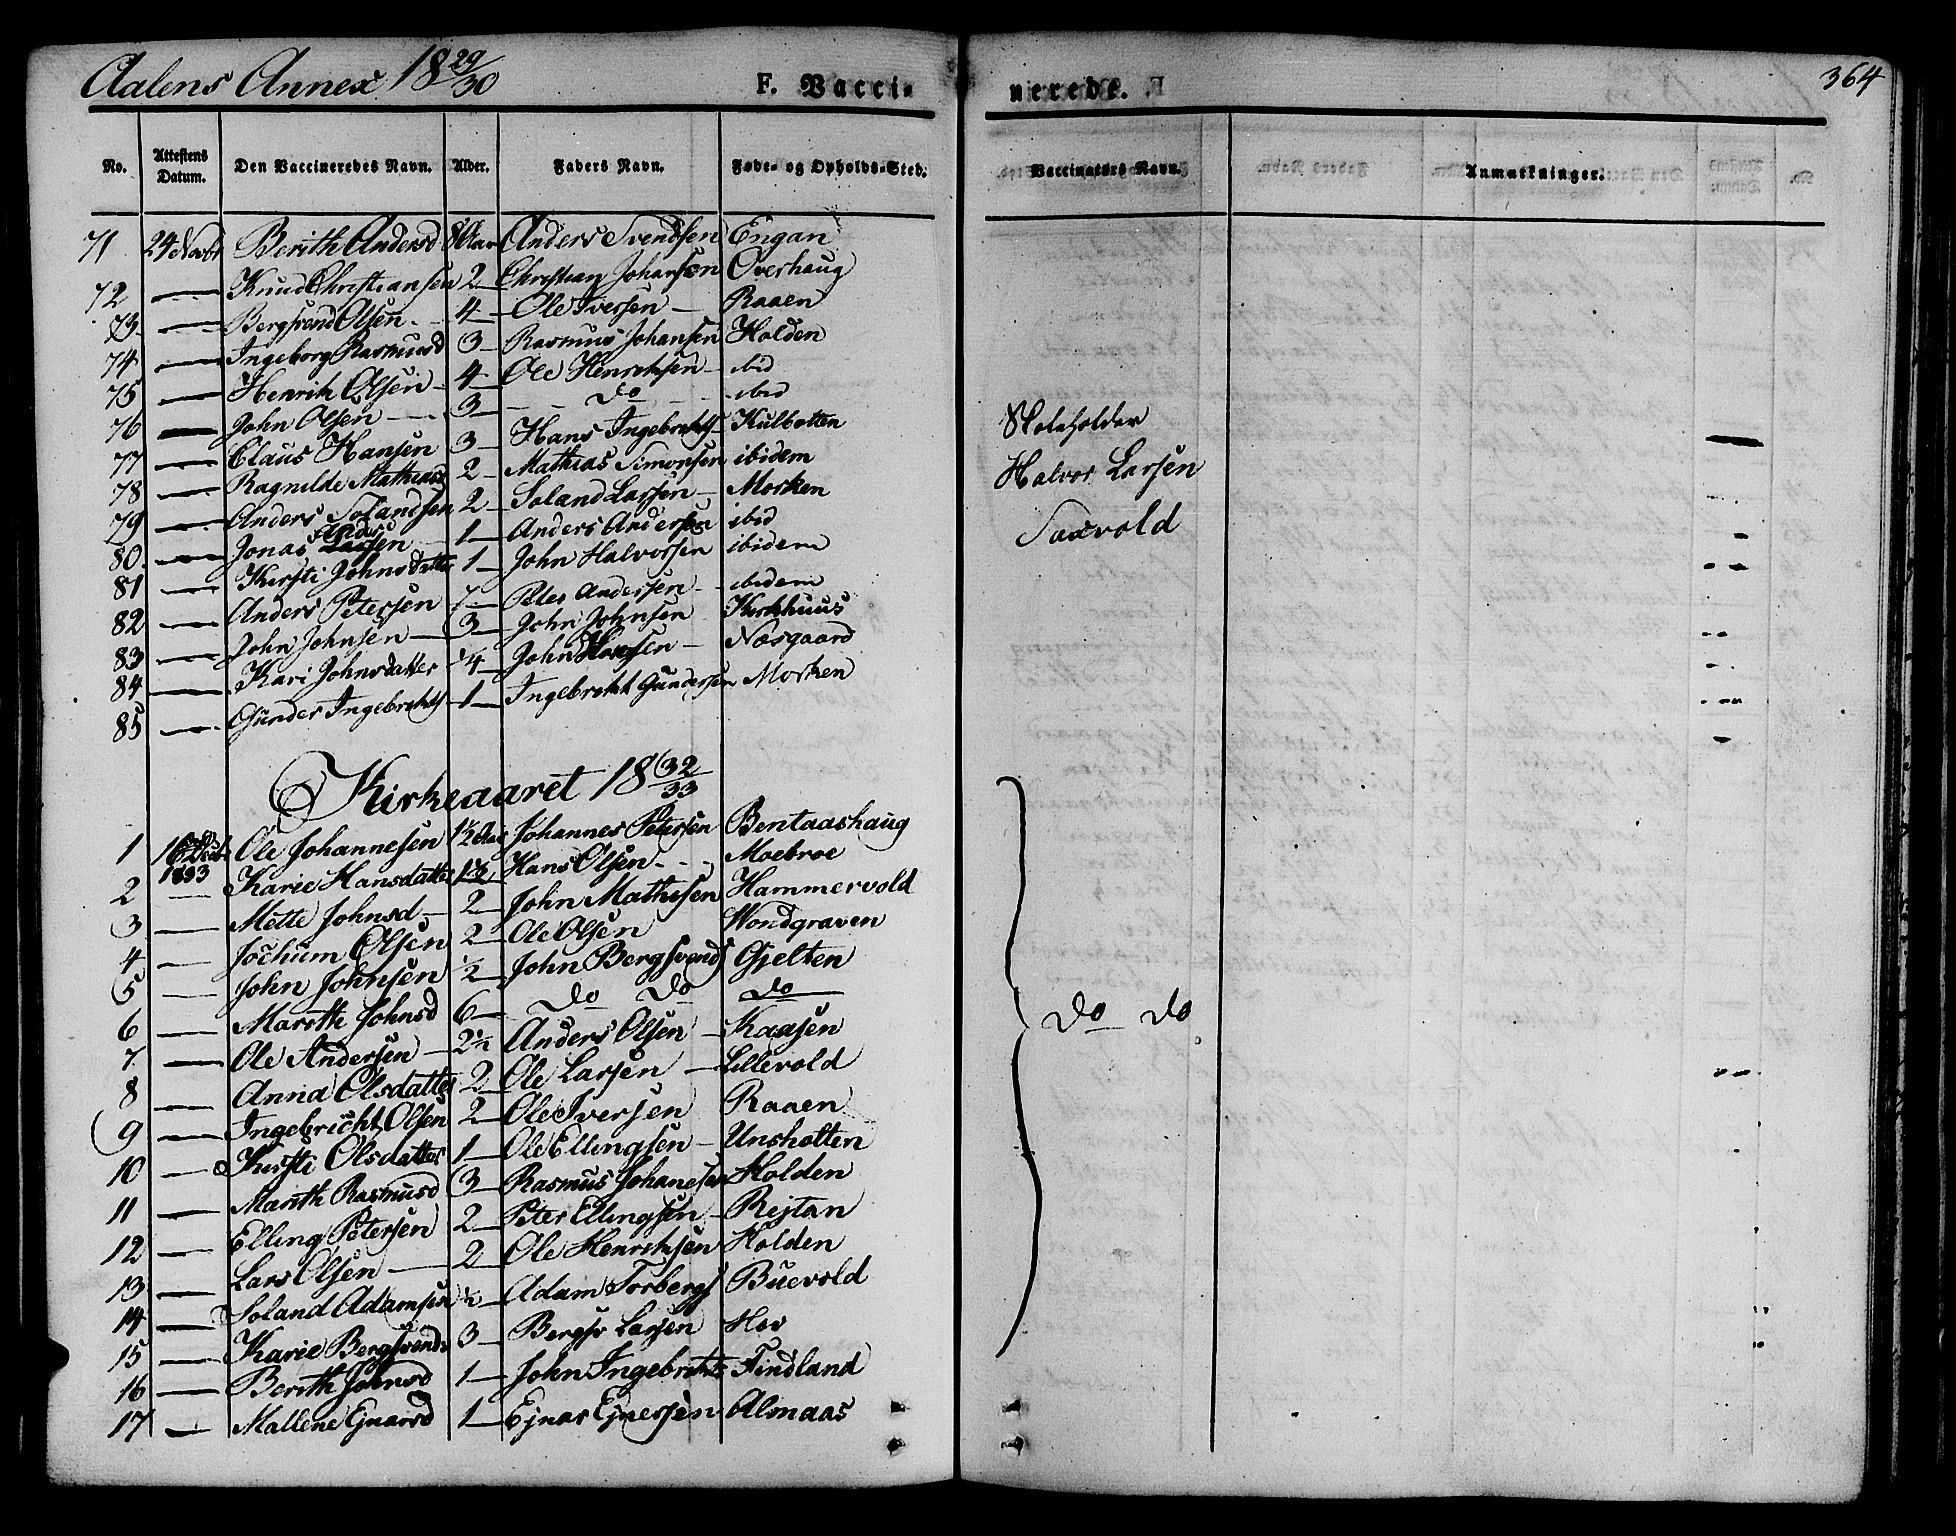 Aalens Annex 18 29/30
F. Vacci-
nerede.
364
No. Attestens Datum. Den Vaccineredes Navn. Alder. Faders Navn. Føde- og Opholds-Sted. Vaccinateurs Navn. Anmærkninger.
71 24 Novbr Berith Andersd 8 Aar Anders Svendsen Engan
72 — Knud Christiansen 2 Christian Johansen Overhaug
73 — Bergsvend Olsen 4 Ole Iversen Raaen
74 — Ingeborg Rasmusd 3 Rasmus Johansen Holden
75 — Henrik Olsen 4 Ole Henrichsen ibid
76 — John Olsen 3 do ibid
77 — Claus Hansen 3 Hans Ingebrichts Kulbotten
78 — Ragnilde Mathiasd 2 Mathias Simonsen ibidem
79 — Anders Solandsen 2 Soland Larsen Morken
80 — Jonas Anders 1 Anders Andersen ibid
81 — Kirsti Johnsdatter 1 John Halvorsen ibidem
82 — Anders Petersen 7 Peter Andersen ibidem
83 — John Johnsen 3 John Johnsen Kirkhuus
84 — Kari Johnsdatter 1/4 John Hansen Næsgaard
85 — Gunder Ingebrichts 1 Ingebricht Gundersen Morken
Skoleholder
Halvor Larsen
Saxvold
Kirkeaaret 18 32/33
1 16 1833 Ole Johannesen 1 1/2 Aar Johannes Petersen Bentaashaug
2 — Karie Hansdatter 1 1/2 Hans Olsen Moebroe
3 — Mette Johnsd 2 John Mathisen Hammervold
4 — Jochum Olsen 2 Ole Olsen Wondgraven
5 — John Johnsen 1/2 John Bergsvends Gjelten
6 — Marith Johnsd 6 do do do
7 — Ole Andersen 2 1/2 Anders Olsen Kaasen
8 — Anna Olsdatter 2 Ole Larsen Lillevold
9 — Ingebricht Olsen 2 Ole Iversen Raaen
10 — Kirsti Olsdatter 1 Ole Ellingsen Unsholten
11 — Marith Rasmusd 3 Rasmus Johanesen Holden
12 — Elling Petersen 2 Peter Ellingsen Rejtan
13 — Lars Olsen 2 Ole Henrichsen Holden
14 — Soland Adamsen 1/2 Adam Torbergs Buevold
15 — Karie Bergsvends 3 Bergsv Larsen Hov
16 — Berith Johnsd 1 John Ingebrichts Findland
17 — Mallene Ejnarsd 1 Ejnar Ejnersen Almaas
do do